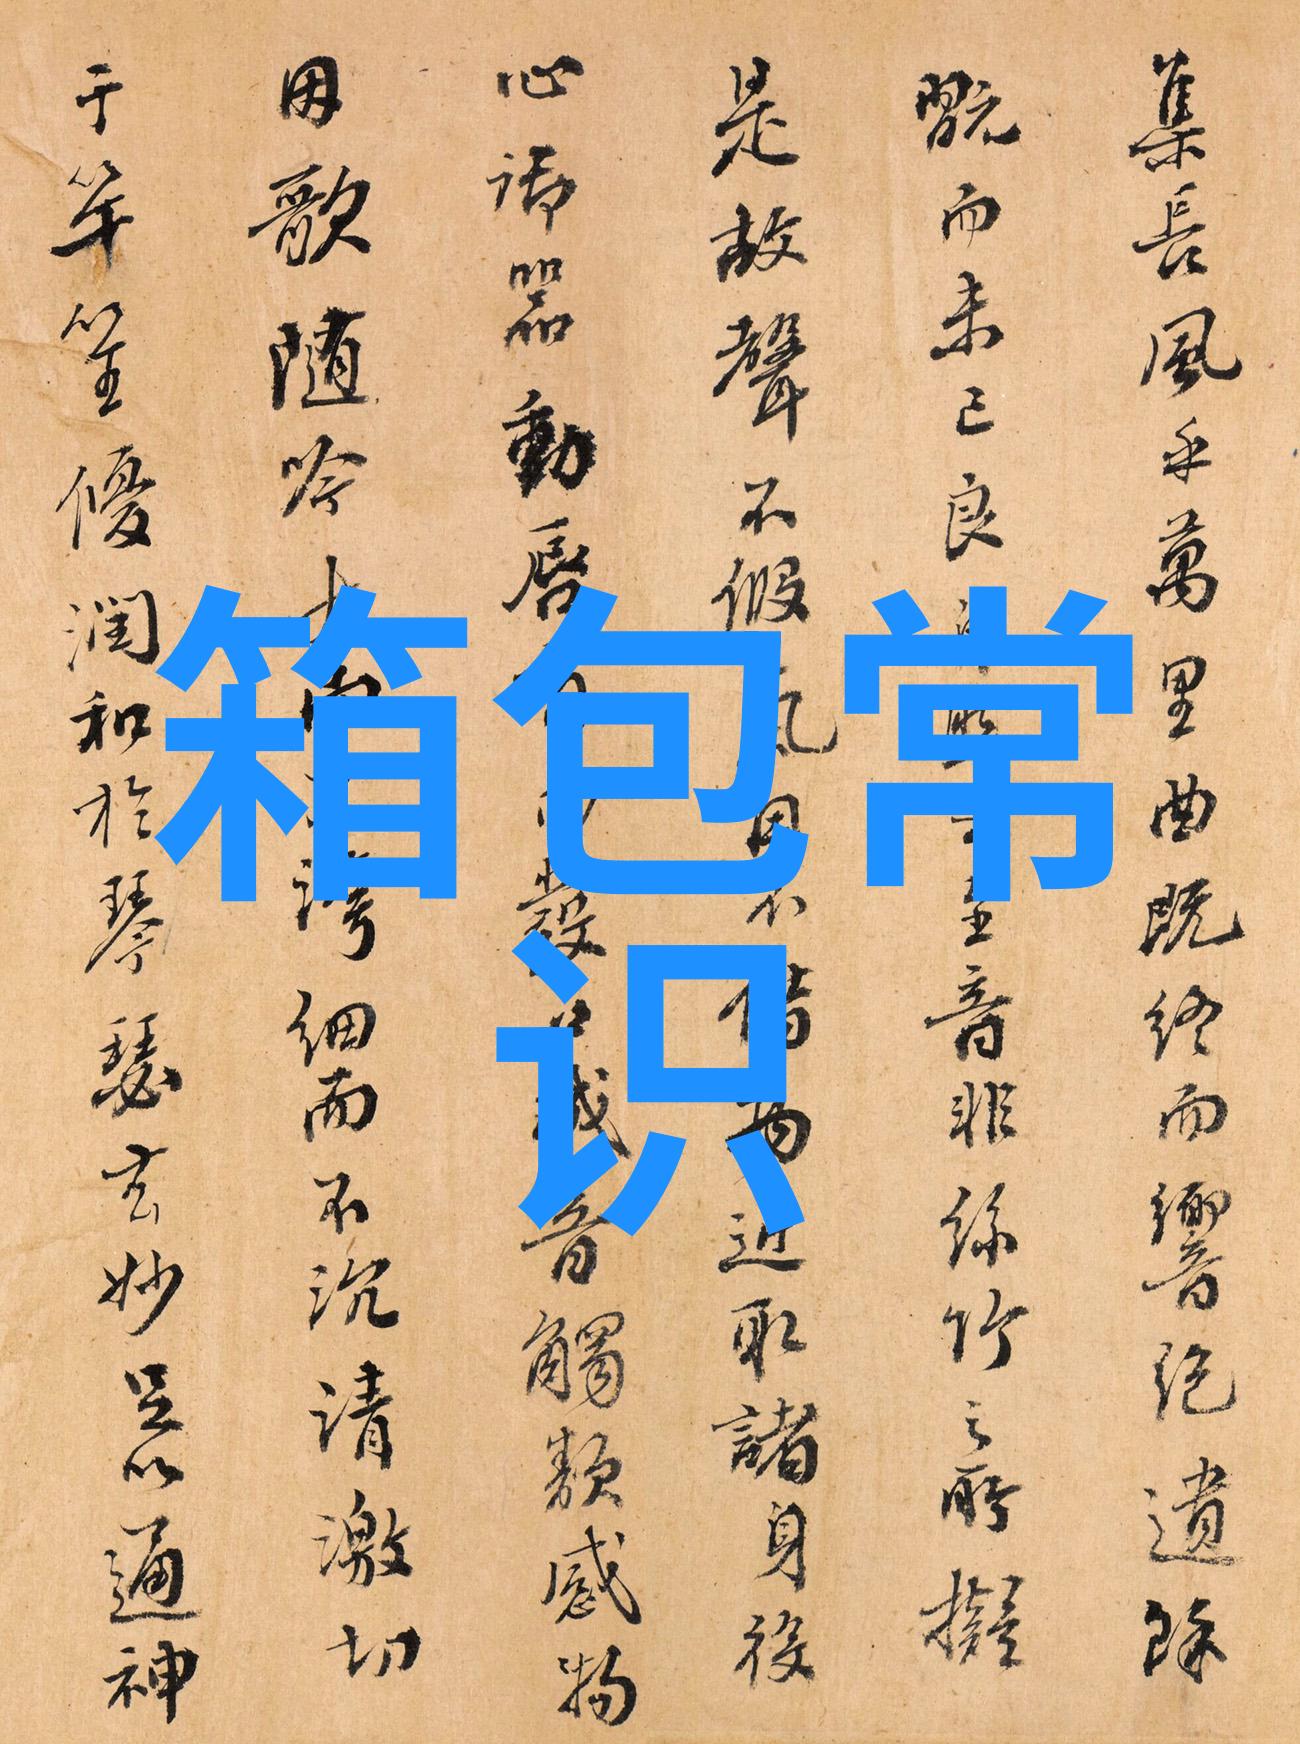 箱包常
识
集長風乎萬里曲既終而響絕遺餘
翫而未已良
音非絲竹之所擬
是故聲不假
近取諸身役
心御器動唇
音觸類感物
因歌隨吟
細而不沉清激切
于竽笙優潤和於琴瑟玄妙足以通神